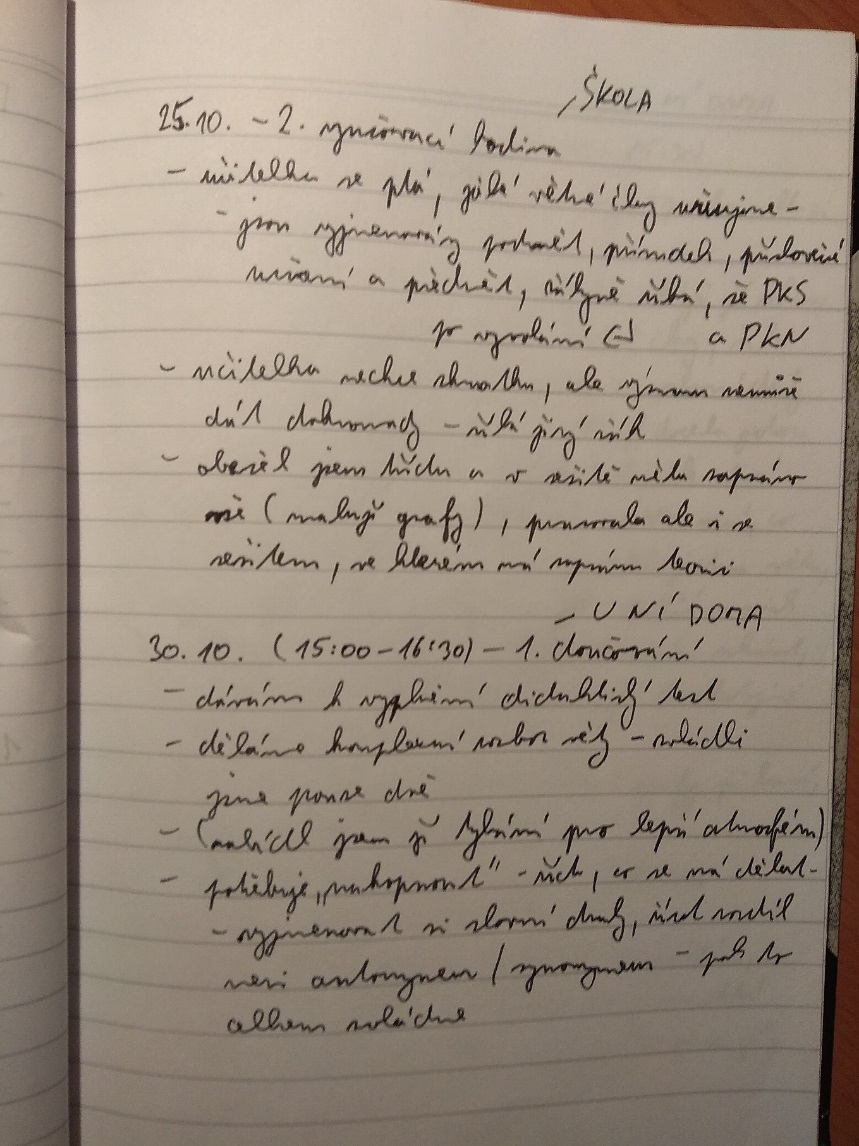 ŠKOLA
25.10. - 2. vyučovací hodina
- učitelka se ptá, jaké větné členy určujeme -
- jsou vyjmenovány podmět, přísudek, příslovečné
určení a předmět, žákyně říká, že PKS
po vyvolání a PKN
- učitelka nechce zkratku, ale význam nemůže
dát dohromady - říká jiný žák
- obešel jsem třídu a v sešitě měla zapsáno
vše (maluji grafy), pracovala ale i se
sešitem, ve kterém má zapsánu teorii
- U NÍ DOMA
30.10. (15:00-16:30) - 1. doučování
- dávám k vyplnění didaktický test
- děláme komplexní rozbor věty - zvládli
jsme pouze dvě
- (nabídl jsem jí tykání pro lepší atmosféru)
- potřebuje „nakopnout" - říct, co se má dělat -
- vyjmenovat si slovní druhy, říct rozdíl
mezi antonymem / synonymem - pak to
celkem zvládne